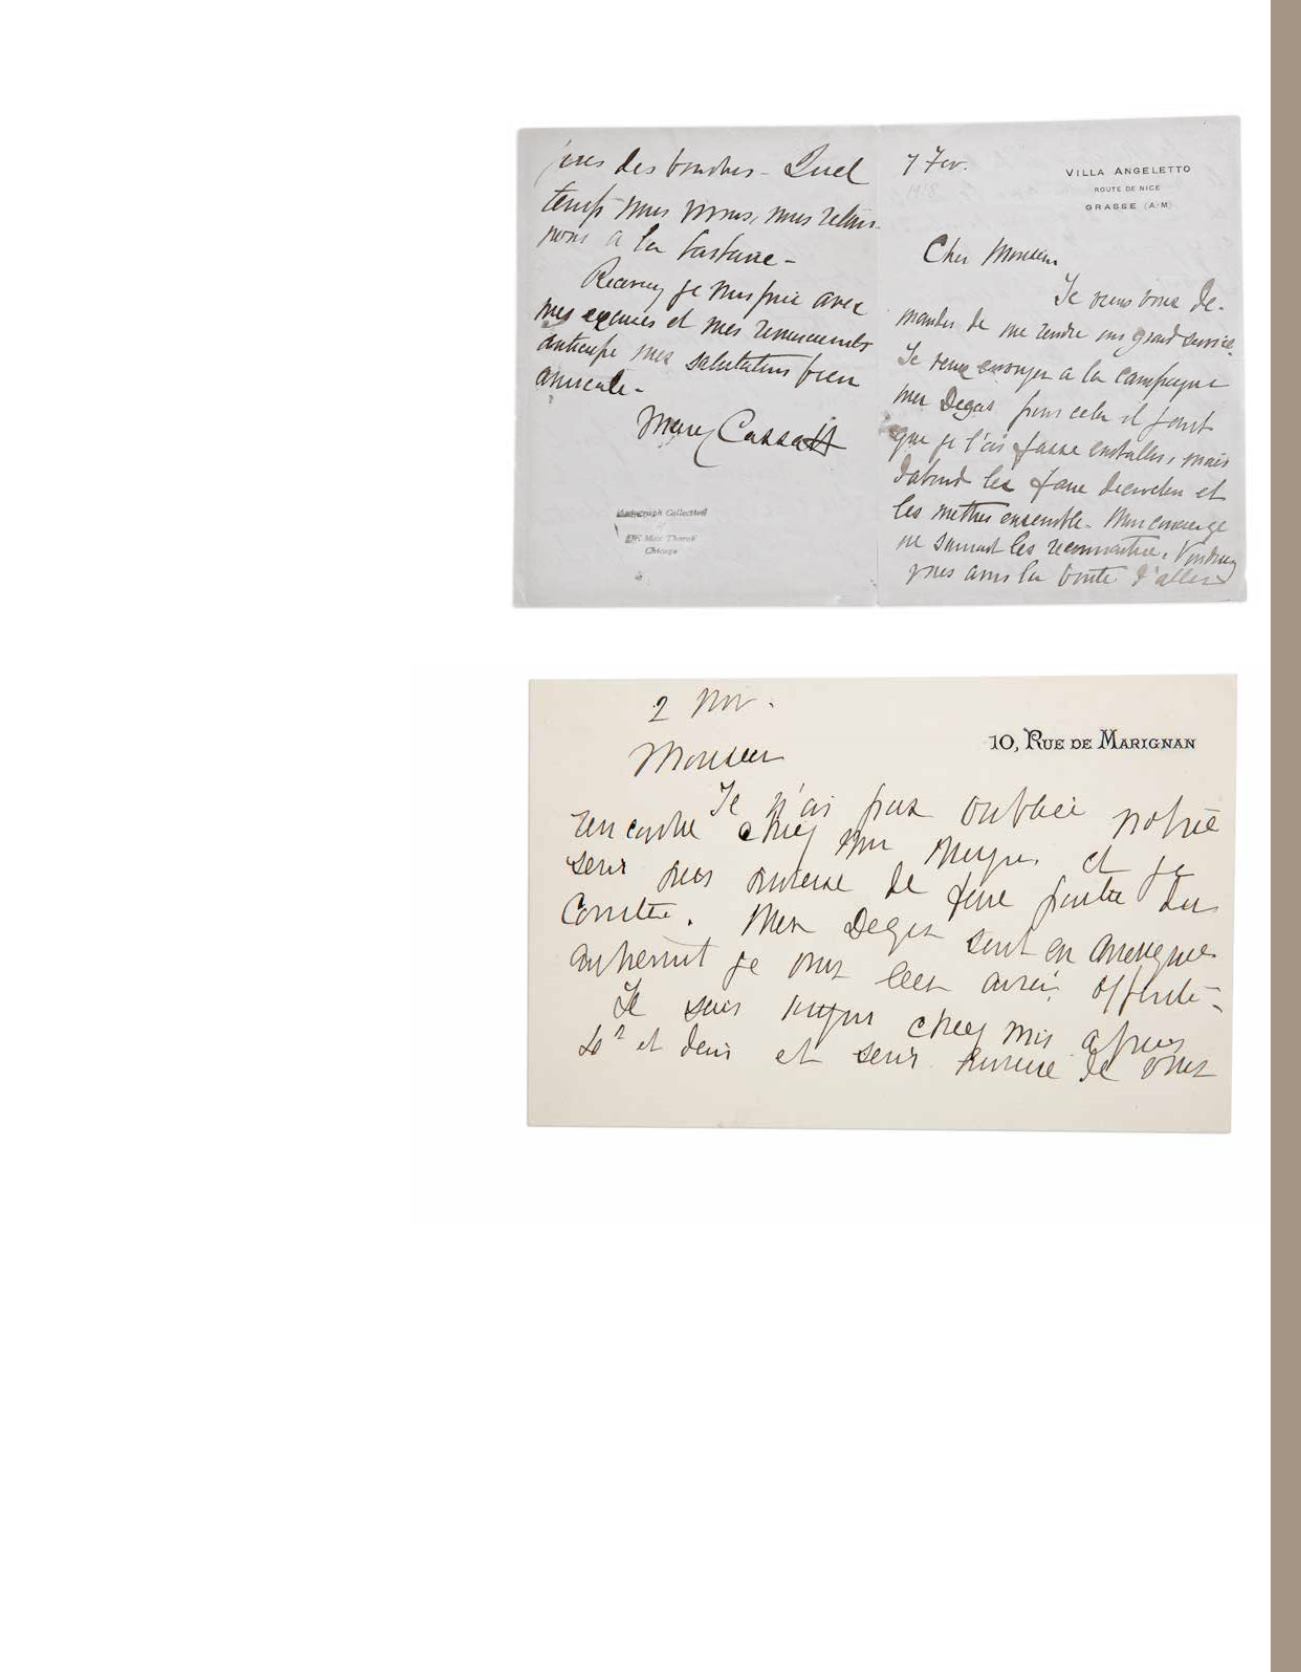 des bombes - Quel
temps nous vivons, nous retour-
nons a la barbarie -
Recevez je vous prie avec
mes excuses et mes remerciements
anticipe mes salutations bien
amicale -
Mary Cassatt
Autograph Collection
of
Dr. Max Thorek
Chicago
7 Fev.
1918
VILLA ANGELETTO
ROUTE DE NICE
GRASSE (A-M)
Cher Monsieur
Je veux vous de-
mander de me rendre un grand service.
Je veux envoyer a la campagne
mes Degas pour cela il faut
que je fasse emballer, mais
dabord les faire decrocher et
les mettre ensemble - Mon concierge
ne saurait les reconnaitre. Voudriez
vous avoir la bonte d'aller
2 Nov.
10, RUE DE MARIGNAN
Monsieur
Je n'ai pas oublié notre
rencontre chez et je
serais heureuse de faire partie du
Comité. Mes Degas sont en Amerique
autrement je vous les aurais offerts -
Je suis toujours chez moi apres
et demi et serai heureuse de vous